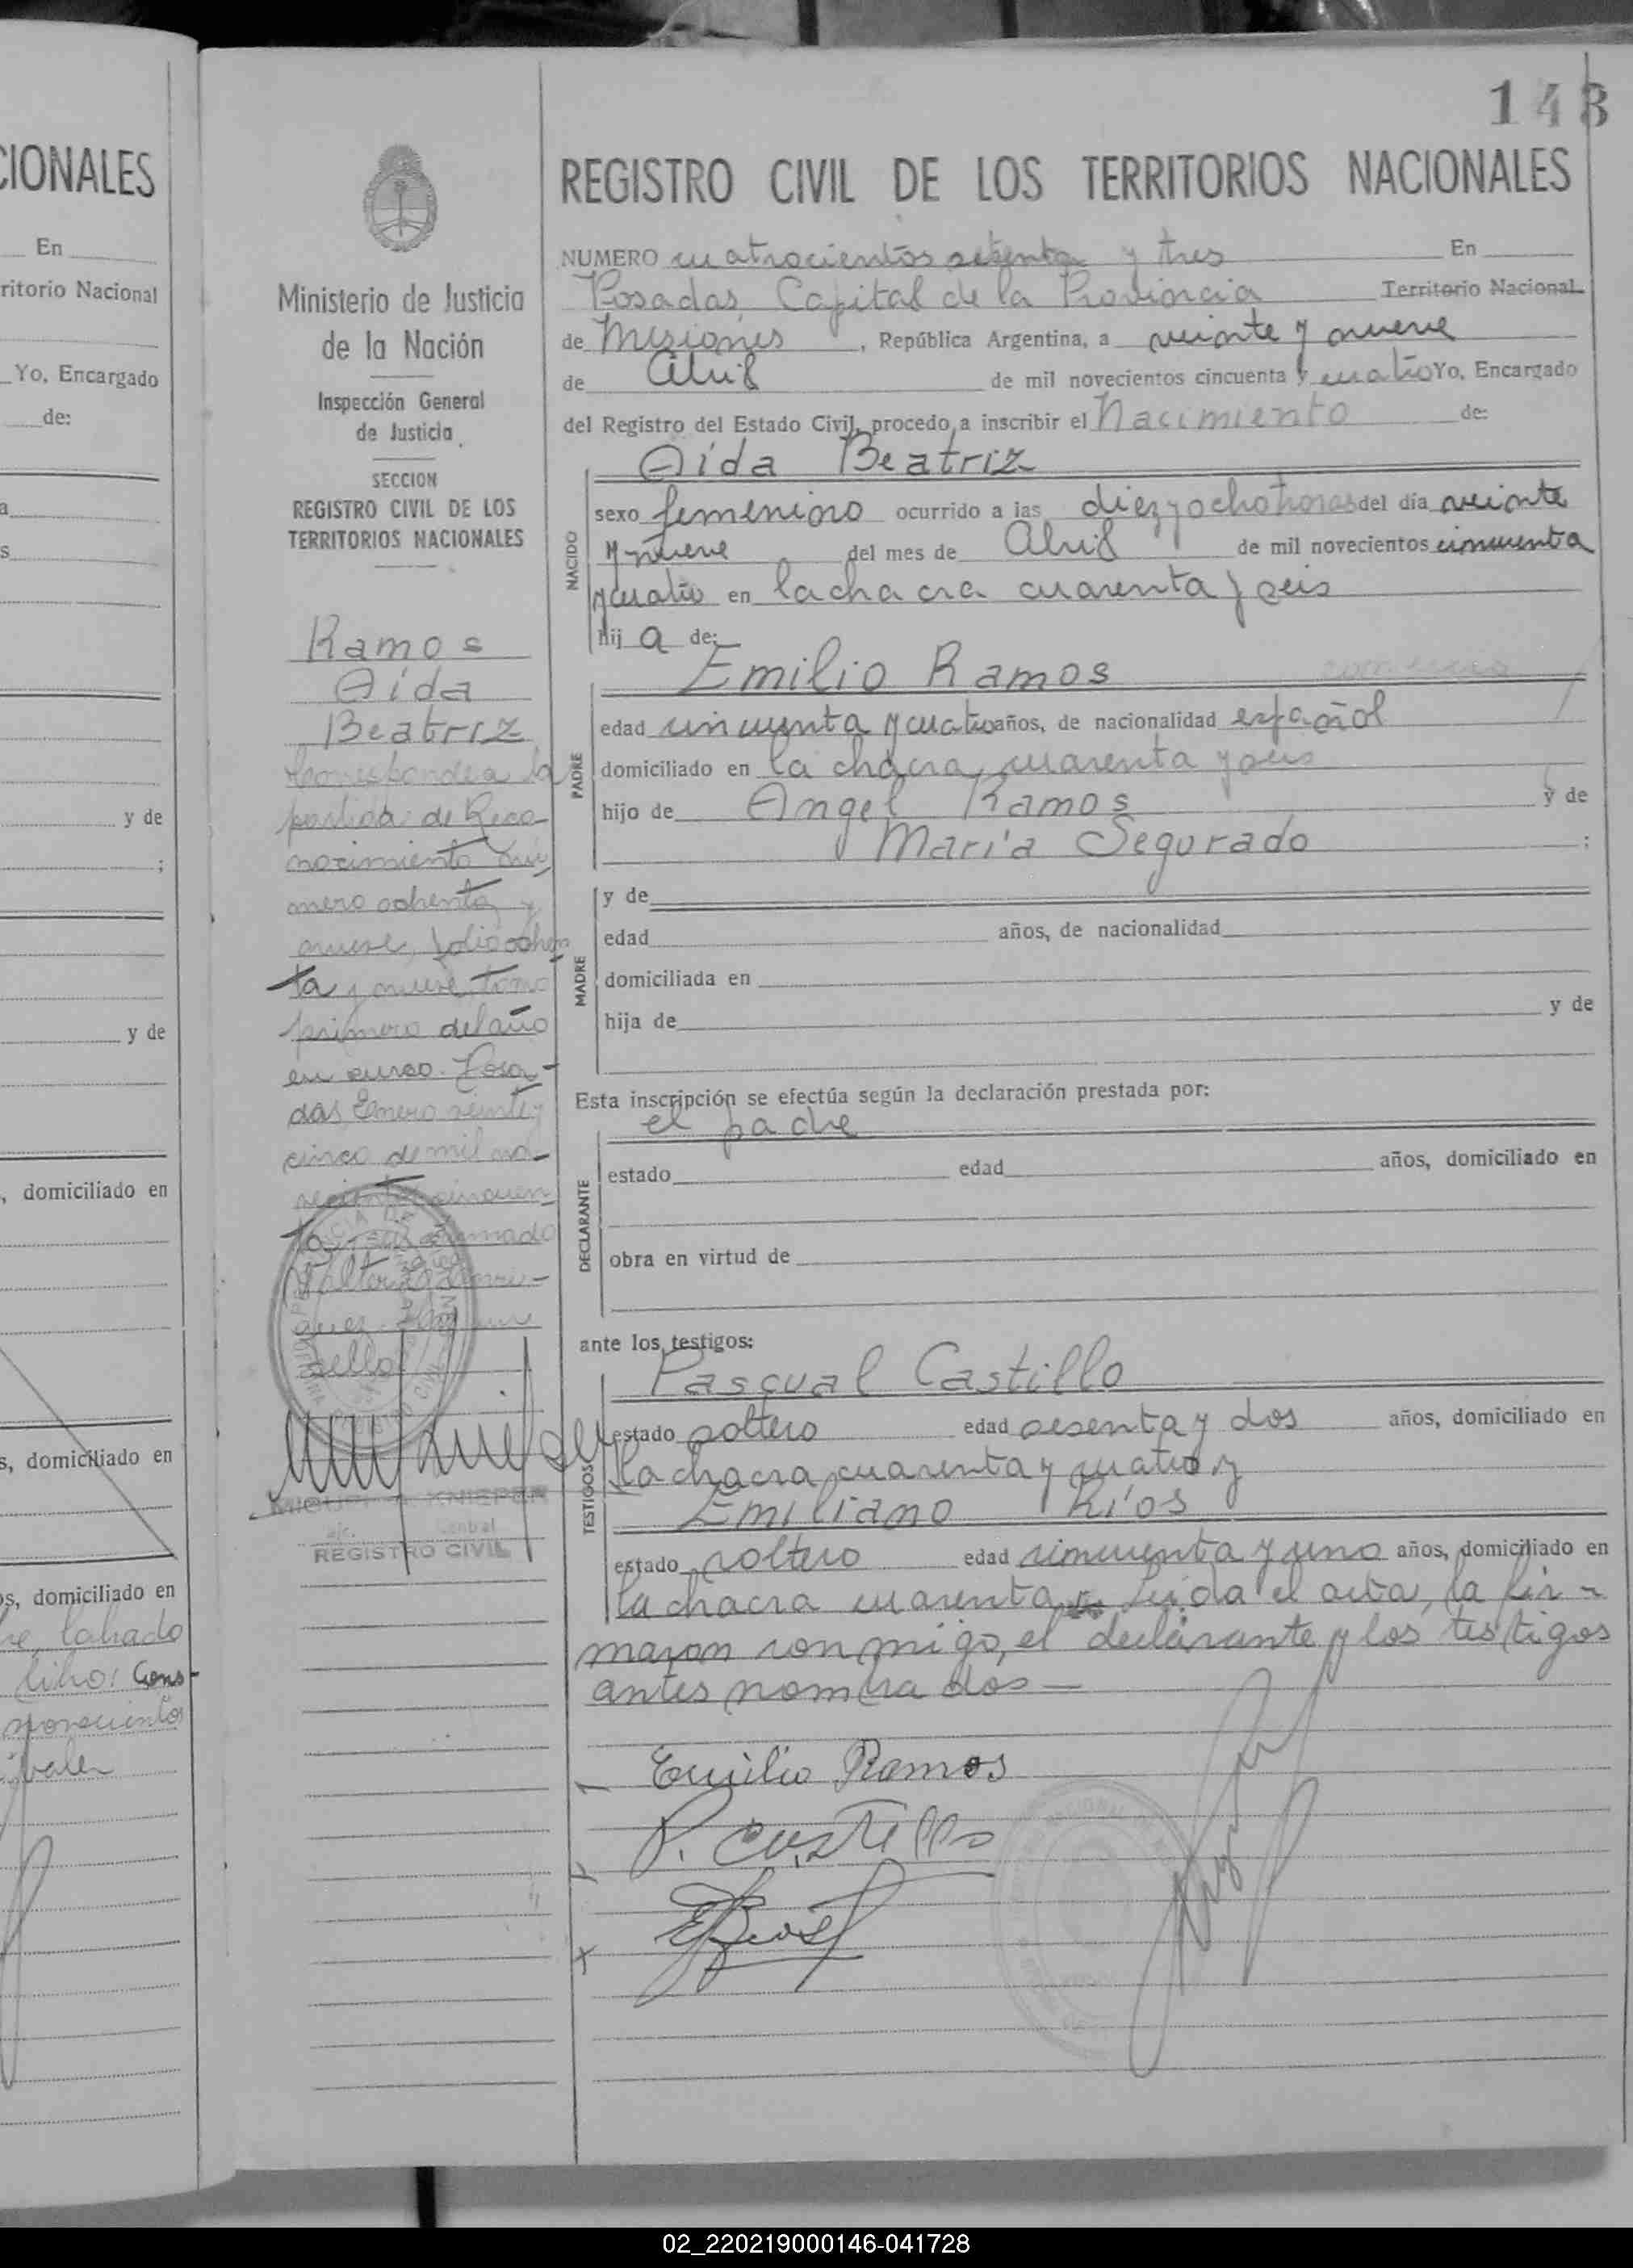 CIONALES
En
ritorio Nacional
Yo, Encargado
de:
a
s
y de
;
y de
, domiciliado en
s, domiciliado en
os, domiciliado en
re, labado
libro: Cons-
novecientos
vale
Ministerio de Justicia
de la Nación
Inspección General
de Justicia
SECCION
REGISTRO CIVIL DE LOS
TERRITORIOS NACIONALES
Ramos
Aída
Beatriz
Corresponde a la
partida de Reco-
nocimiento nú-
mero ochenta y
nueve, folio ochen
ta y nueve, tomo
primero del año
en curso. Posa-
das Enero veinte y
cinco de mil no-
vecientos cincuen
ta y firmado
sello
MIGUEL A. KNIEPER
REGISTRO CIVIL
148
REGISTRO CIVIL DE LOS TERRITORIOS NACIONALES
NUMERO cuatrocientos setenta y tres En
Posadas, Capital de la Provincia Territorio Nacional
de Misiones, República Argentina, a veinte y nueve
de Abril de mil novecientos cincuenta y cuatro Yo, Encargado
del Registro del Estado Civil, procedo a inscribir el Nacimiento de:
NACIDO
Aída Beatriz
sexo femenino ocurrido a las diez y ocho horas del día veinte
y nueve del mes de Abril de mil novecientos cincuenta
y cuatro en la chacra cuarenta y seis
hija de:
PADRE
Emilio Ramos
edad cincuenta y cuatro años, de nacionalidad español
domiciliado en la chacra cuarenta y seis
hijo de Angel Ramos y de
María Segurado ;
MADRE
y de
edad años, de nacionalidad
domiciliada en
hija de y de
Esta inscripción se efectúa según la declaración prestada por:
DECLARANTE
el padre
estado edad años, domiciliado en
obra en virtud de
ante los testigos:
TESTIGOS
Pascual Castillo
estado soltero edad sesenta y dos años, domiciliado en
la chacra cuarenta y cuatro y
Emiliano Ríos
estado soltero edad cincuenta y uno años, domiciliado en
la chacra cuarenta Leída el acta, la fir-
maron conmigo, el declarante y los testigos
antes nombrados —
Emilio Ramos
P. Castillo
02_220219000146-041728